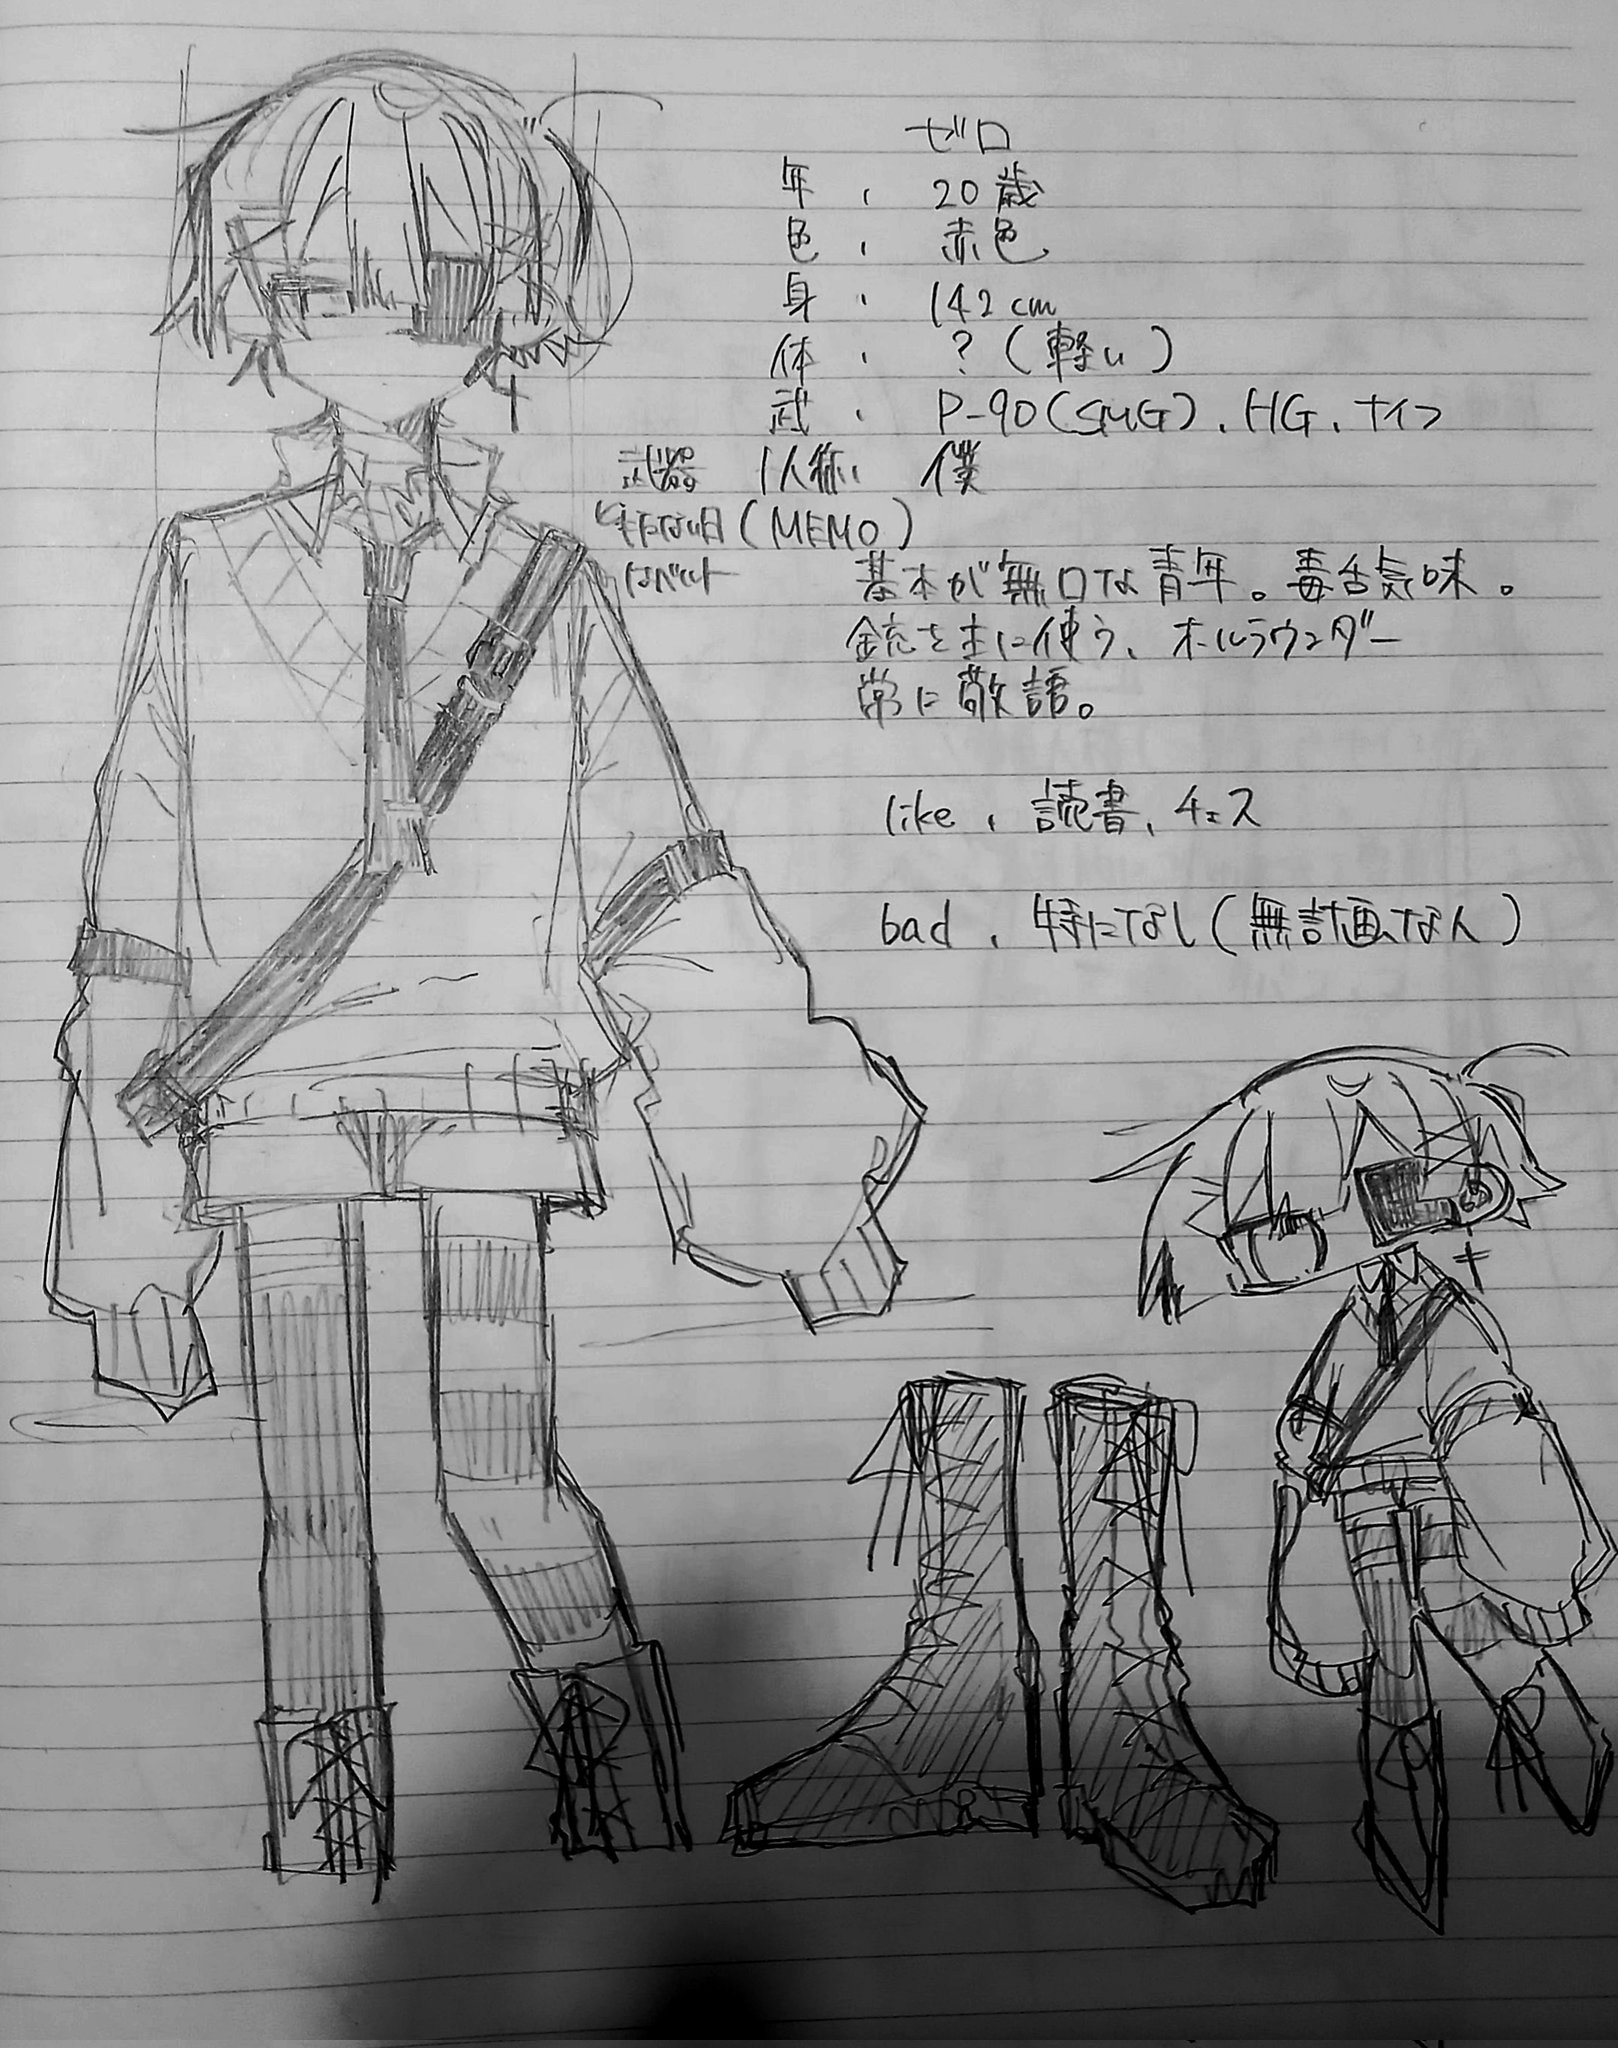 ゼロ
年、20歳
色、赤色
身、142cm
体、?(軽い)
武、P-90(SMG)、HG、ナイフ
武器
1人称、僕
(MEMO)
基本が無口な青年。毒舌気味。
銃を主に使う、オールラウンダー
常に敬語。
like、読書、チェス
bad、特になし(無計画な人)